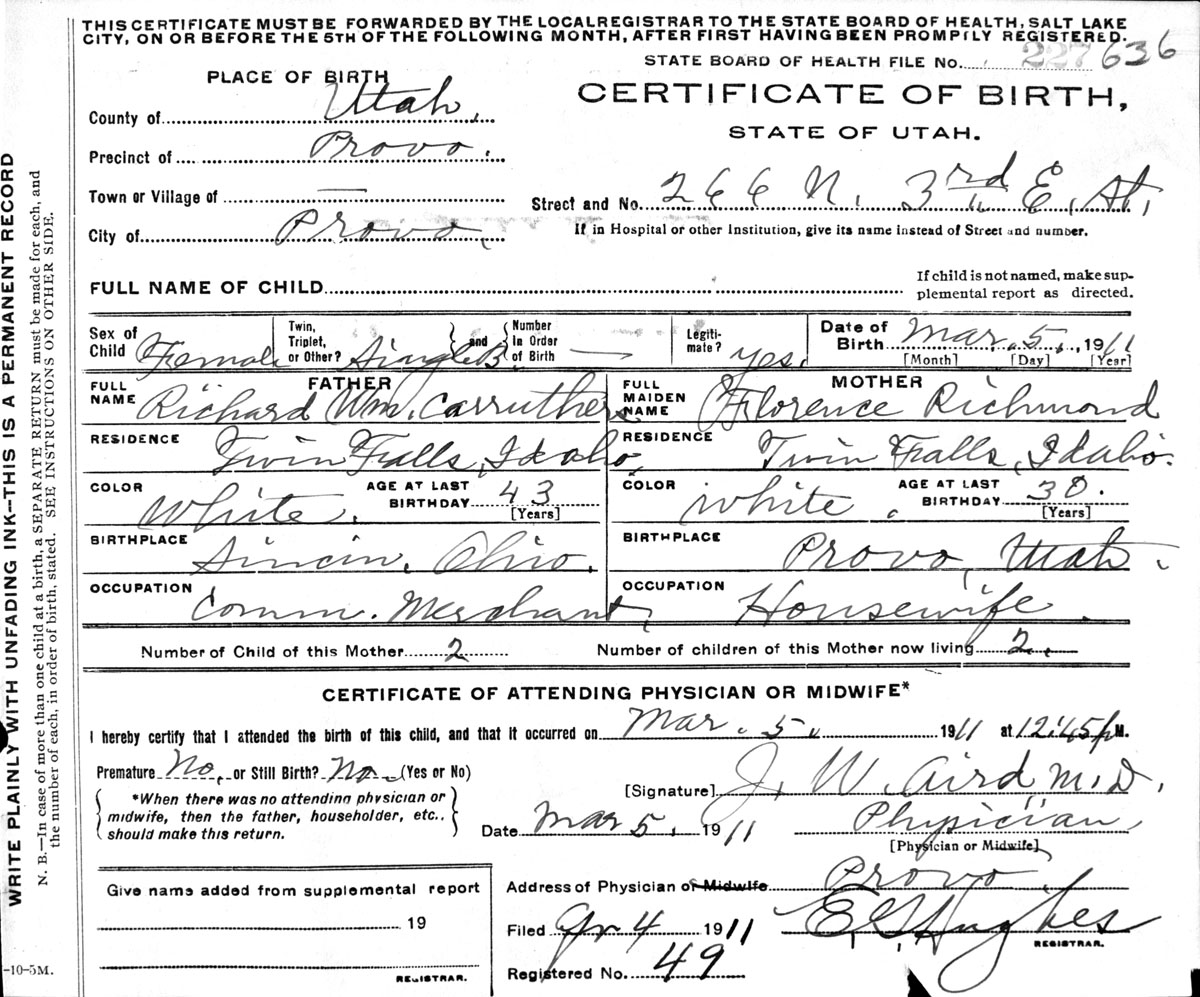 THIS CERTIFICATE MUST BE FORWARDED BY THE LOCAL REGISTRAR TO THE STATE BOARD OF HEALTH, SALT LAKE
CITY, ON OR BEFORE THE 5TH OF THE FOLLOWING MONTH, AFTER FIRST HAVING BEEN PROMPTLY REGISTERED.
STATE BOARD OF HEALTH FILE No. 227 636
PLACE OF BIRTH
CERTIFICATE OF BIRTH,
STATE OF UTAH.
County of Utah.
Precinct of Provo.
Town or Village of —
Street and No. 266 N. 3rd E. St.
City of Provo.
If in Hospital or other Institution, give its name instead of Street and number.
FULL NAME OF CHILD
If child is not named, make sup-
plemental report as directed.
Sex of Child Female
Twin, Triplet, or Other? Single B. and Number In Order of Birth —
Legiti-mate? yes.
Date of Birth Mar. 5., 1911
[Month] [Day] [Year]
FATHER
FULL NAME Richard Wm. Carruthers
RESIDENCE Twin Falls, Idaho
COLOR White. AGE AT LAST BIRTHDAY 43
[Years]
BIRTHPLACE Sincin. Ohio.
OCCUPATION Comm. Merchant,
MOTHER
FULL MAIDEN NAME Florence Richmond
RESIDENCE Twin Falls, Idaho.
COLOR White. AGE AT LAST BIRTHDAY 30.
[Years]
BIRTHPLACE Provo, Utah.
OCCUPATION Housewife.
Number of Child of this Mother 2
Number of children of this Mother now living 2.
CERTIFICATE OF ATTENDING PHYSICIAN OR MIDWIFE*
I hereby certify that I attended the birth of this child, and that it occurred on Mar. 5. 1911 at 12:45 p M.
Premature No, or Still Birth? No. (Yes or No)
[Signature] J. W. Aird M.D.
*When there was no attending physician or
midwife, then the father, householder, etc.,
should make this return.
Date Mar 5. 1911
Physician
[Physician or Midwife]
Give name added from supplemental report
19
REGISTRAR.
Address of Physician or Midwife Provo
Filed 4 1911
Hughes
REGISTRAR.
Registered No. 49
WRITE PLAINLY WITH UNFADING INK--THIS IS A PERMANENT RECORD
N. B.—In case of more than one child at a birth, a SEPARATE RETURN must be made for each, and
the number of each, in order of birth, stated. SEE INSTRUCTIONS ON OTHER SIDE.
-10-5M.